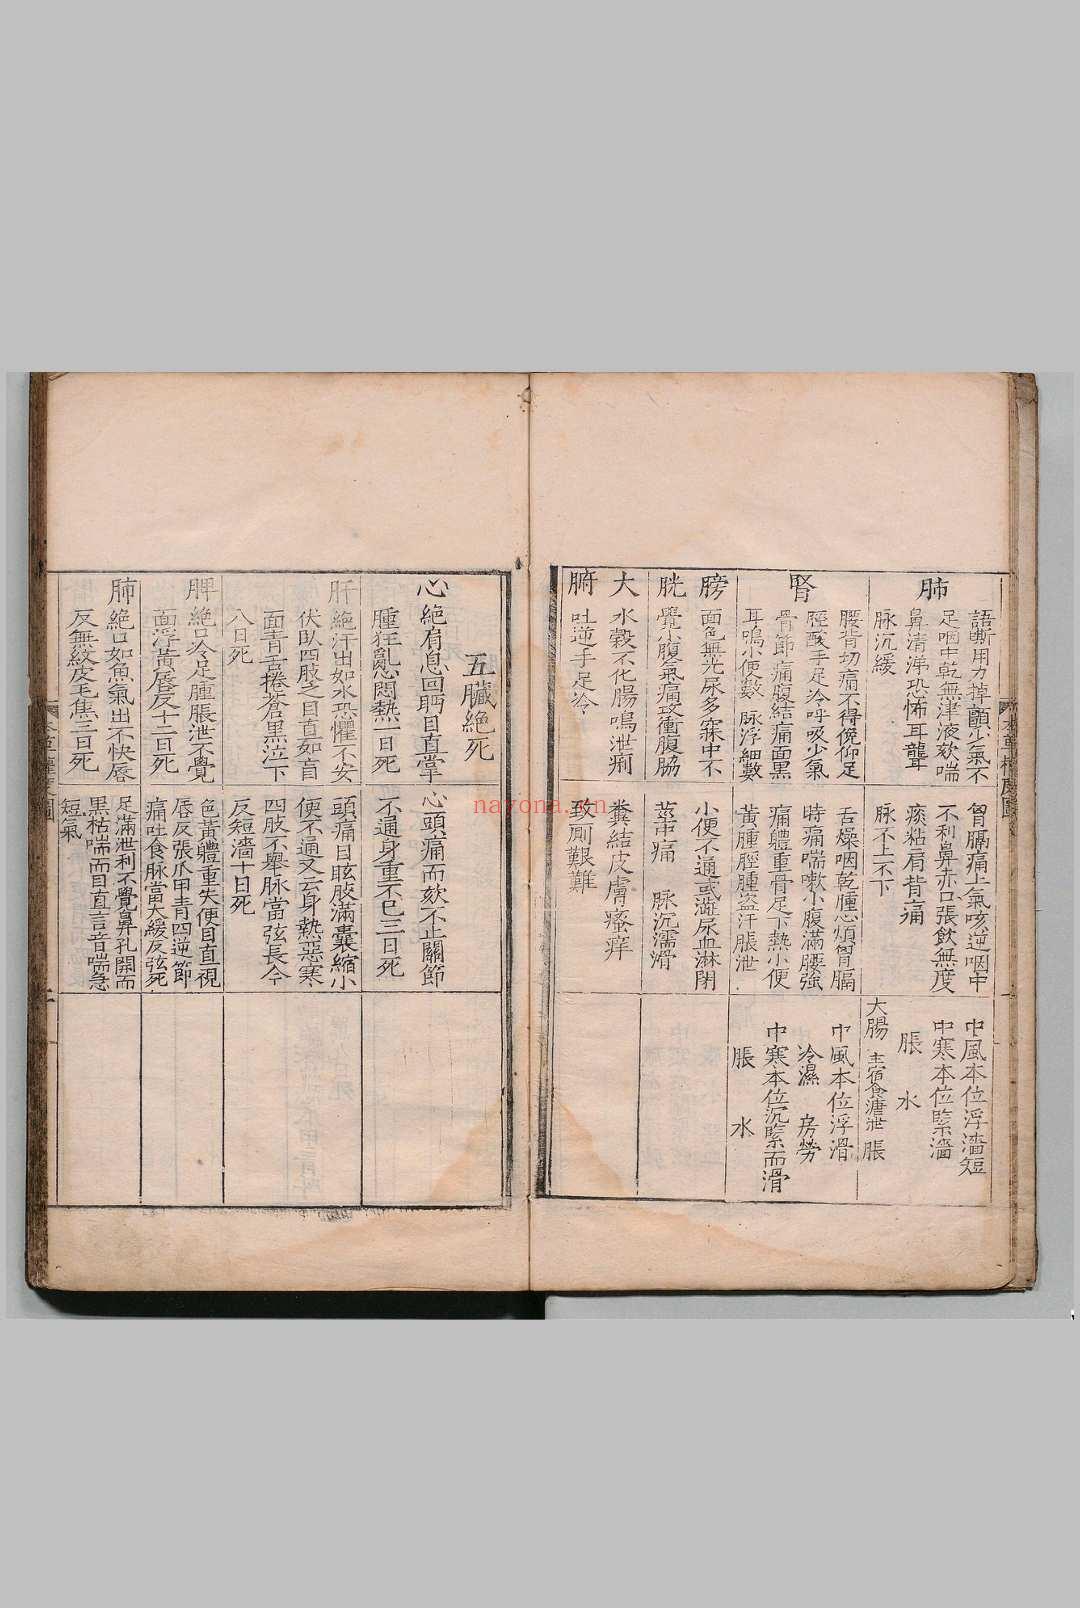 肺
語嘶用力掉顫少氣不
足咽中乾無津液欬喘
鼻清涕恐怖耳聾
脉沉緩
胷膈痛上氣咳逆咽中
不利鼻赤口張飲無度
痰粘肩背痛
脉不上不下
中風本位浮濇短
中寒本位緊濇
脹 水
大腸 主宿食溏泄 脹
腎
腰背切痛不得俛仰足
脛酸手足冷呼吸少氣
骨節痛腹結痛面黑
耳鳴小便數 脉浮細數
舌燥咽乾腫心煩胷膈
時痛喘嗽小腹滿腰強
痛體重骨足下熱小便
黃腫脛腫盜汗脹泄
中風本位浮滑
冷濕 房勞
中寒本位沉緊而滑
脹 水
膀胱
面色無光尿多寐中不
覺小腹氣痛攻衝腹脇
小便不通或澁尿血淋閉
莖中痛 脉沉濡滑
大腑
水穀不化腸鳴泄痢
吐逆手足冷
糞結皮膚瘙痒
致厠艱難
五臟絕死
心絶肩息回眄目直掌
腫狂亂心悶熱一日死
心頭痛而欬不止關節
不通身重不已三日死
肝絶汗出如水恐懼不安
伏臥四肢乏目直如盲
面青舌捲蒼黒泣下
八日死
頭痛目眩肢滿囊縮小
便不通又云身熱惡寒
四肢不舉脉當弦長今
反短濇十日死
脾絶口冷足腫脹泄不覺
面浮黃唇反十二日死
色黃體重失便目直視
唇反張爪甲青四逆節
痛吐食脉當大緩反弦死
肺絶口如魚氣出不快唇
反無紋皮毛焦三日死
足滿泄利不覺鼻孔開而
黑枯喘而目直言音喘急
短氣
nayona.cn